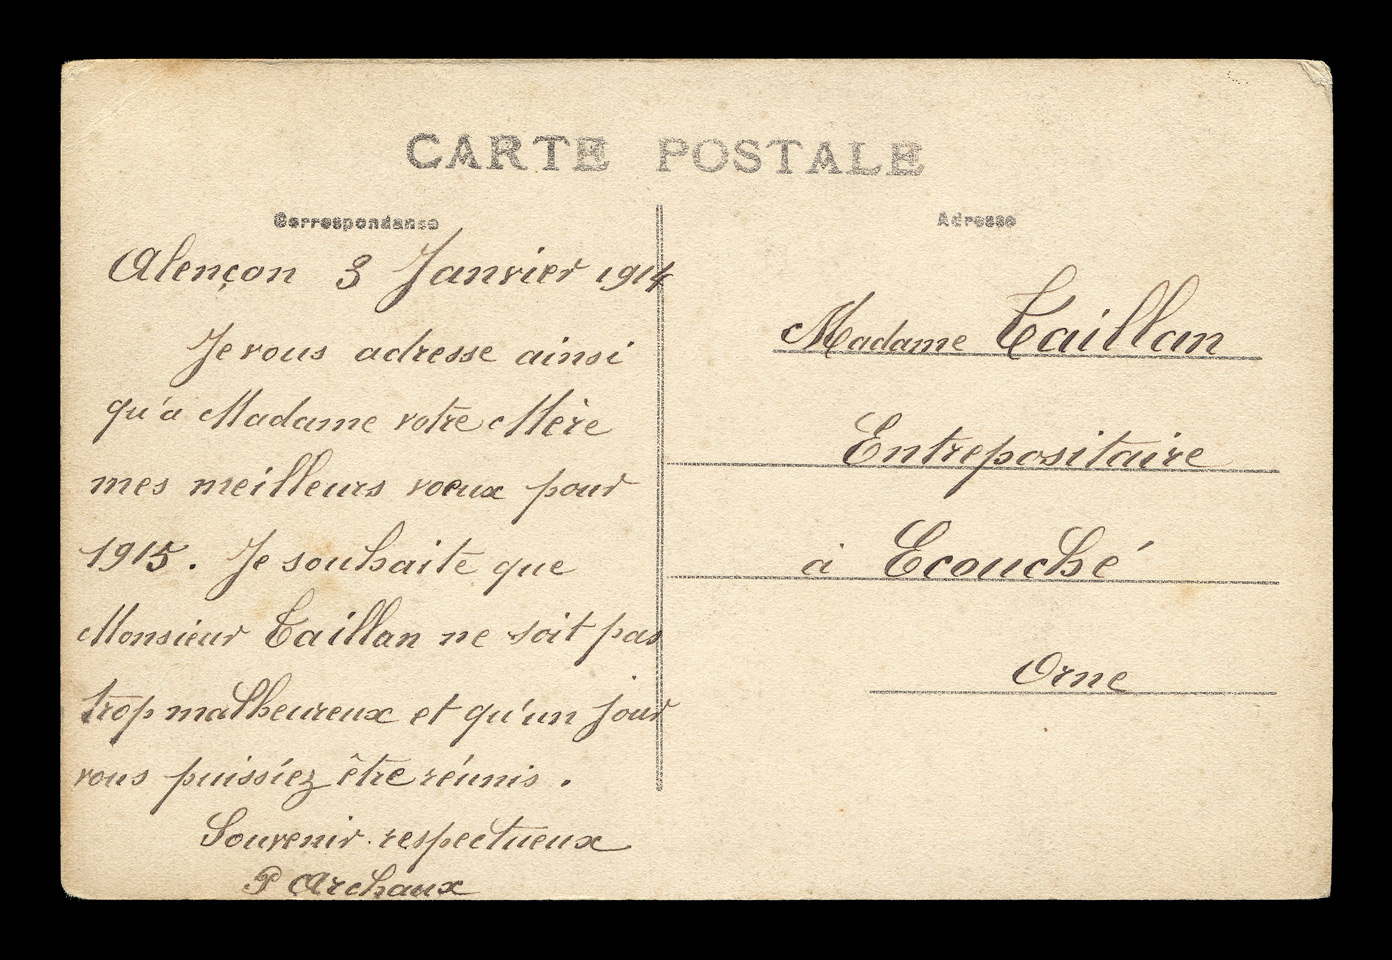 CARTE POSTALE
Correspondance
Alençon 3 Janvier 1914
Je vous adresse ainsi
qu'a Madame votre Mère
mes meilleurs voeux pour
1915. Je souhaite que
Monsieur Taillan ne soit pas
trop malheureux et qu'un jour
vous puissiez être réunis.
Souvenir respectueux
P Archaux
Adresse
Madame Taillan
Entrepositaire
à Ecouché
Orne